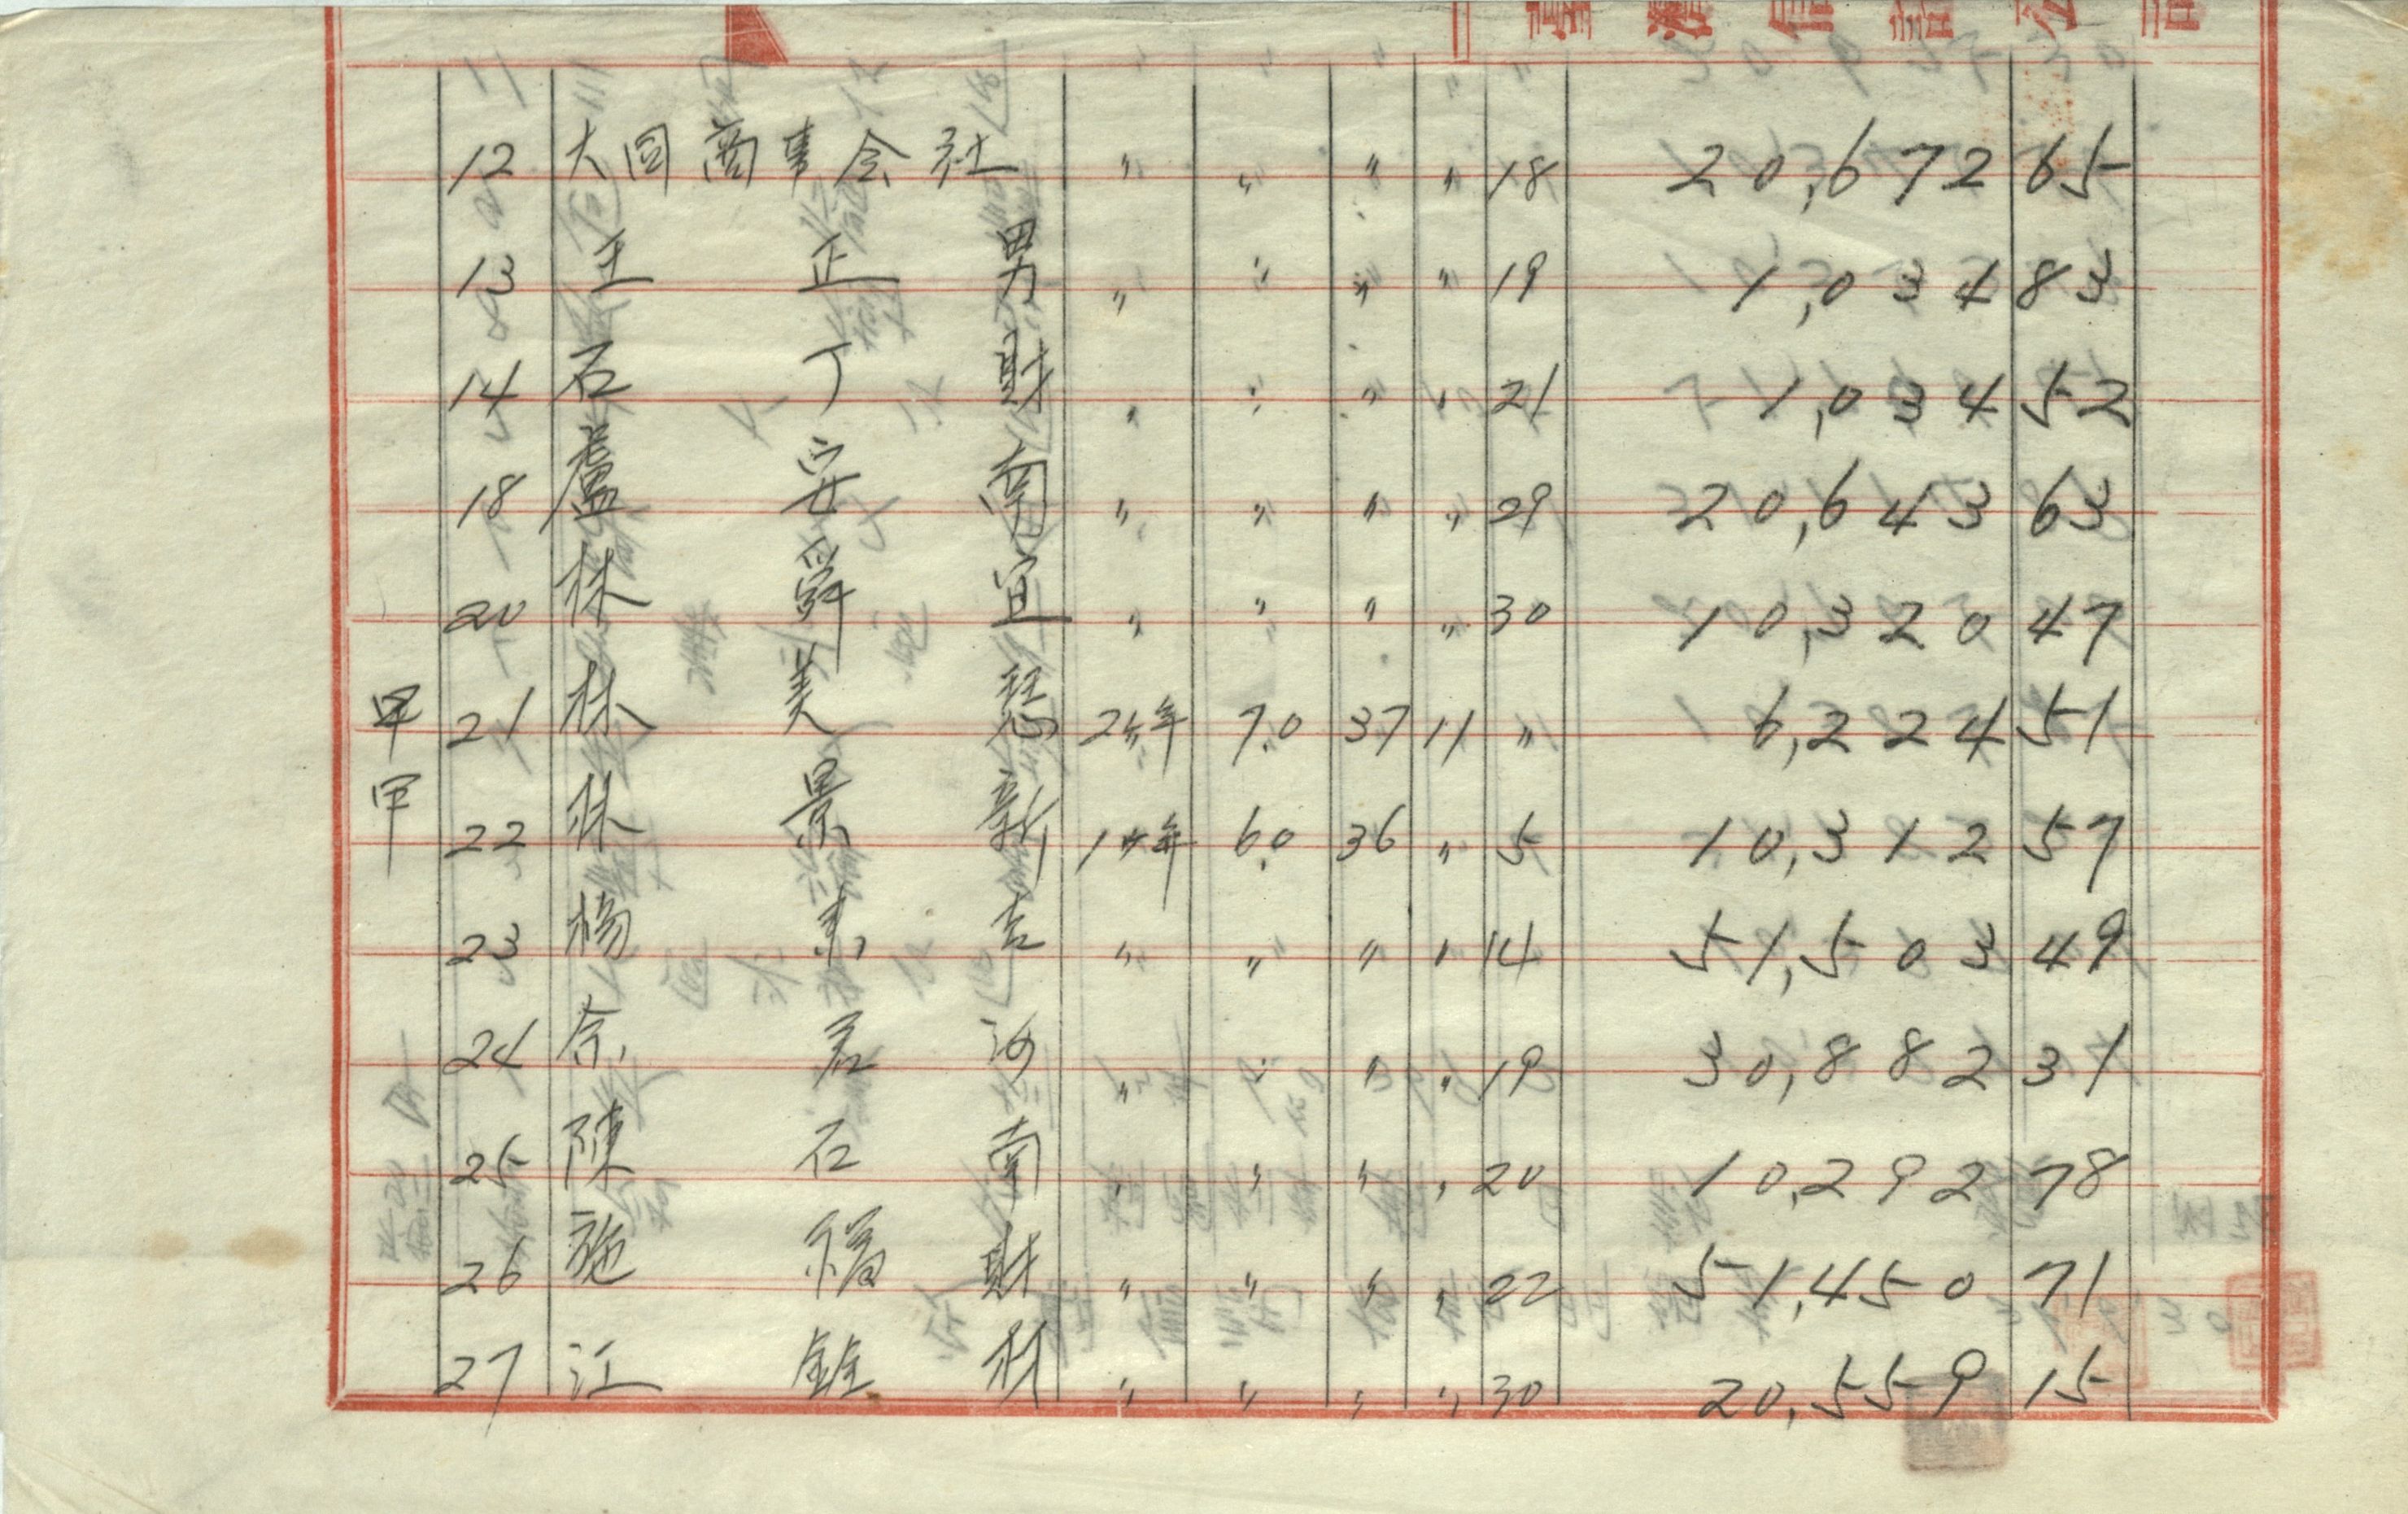 臺灣信託公司
12 大同商事会社 〃 〃 〃 〃 18 20,672 65
13 王正男 〃 〃 〃 〃 19 1,034 83
14 石丁財 〃 〃 〃 〃 21 1,034 52
18 盧安南 〃 〃 〃 〃 29 20,643 63
20 林爵宜 〃 〃 〃 〃 30 10,320 47
甲 21 林美 2ヶ年 7.0 37 11 〃 6,224 51
甲 22 林景新 1ヶ年 6.0 36 〃 5 10,312 57
23 楊素吉 〃 〃 〃 〃 14 51,503 49
24 余君沙 〃 〃 〃 〃 19 30,882 31
25 陳石南 〃 〃 〃 〃 20 10,292 78
26 施福財 〃 〃 〃 〃 22 51,450 71
27 江銓材 〃 〃 〃 〃 30 20,559 15